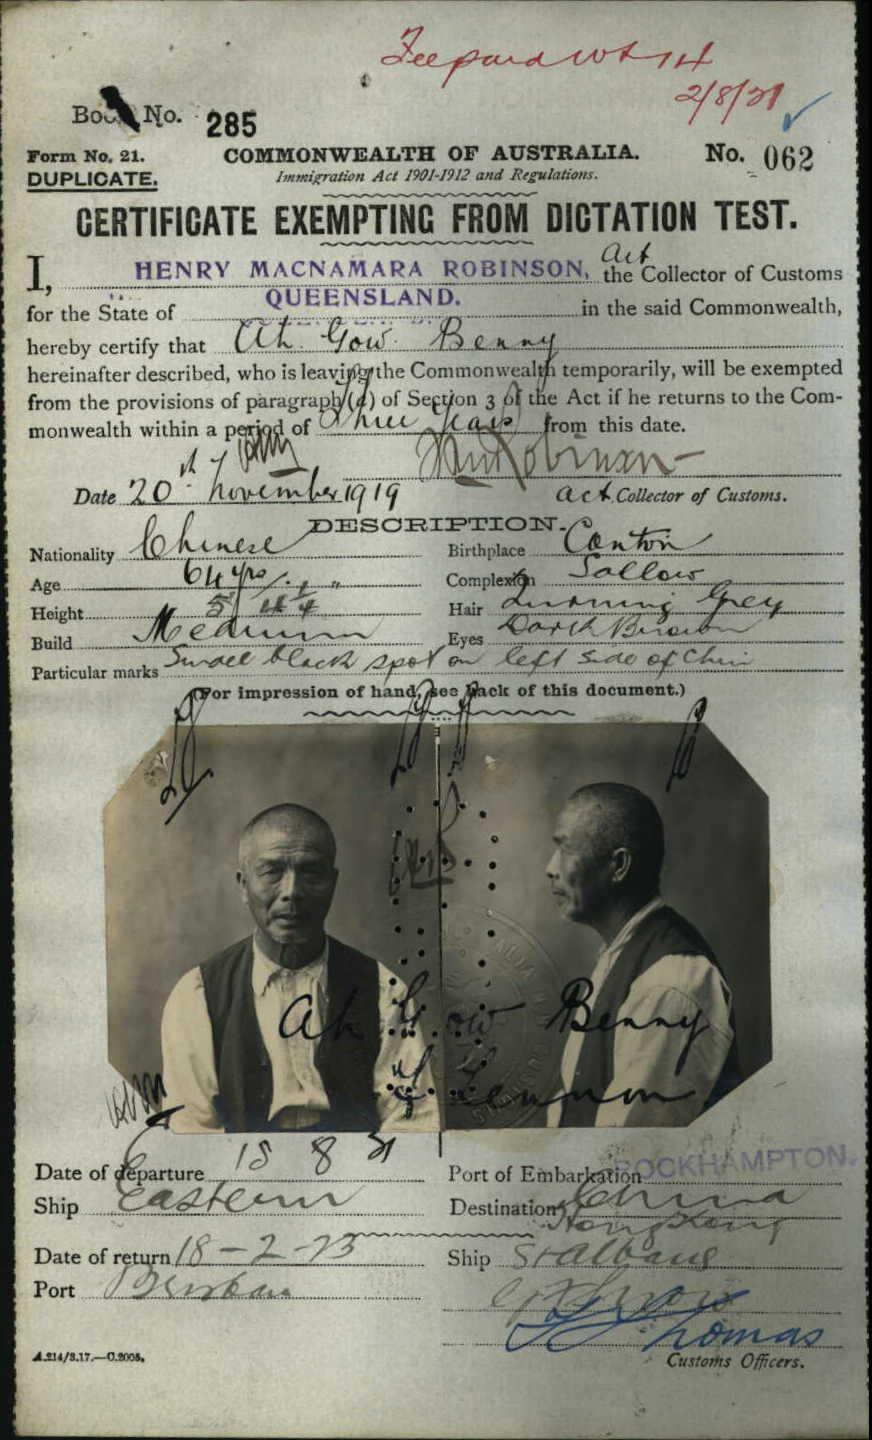 2/8/21
Book No. 285
Form No. 21.
COMMONWEALTH OF AUSTRALIA.
No. 062
DUPLICATE.
Immigration Act 1901-1912 and Regulations.
CERTIFICATE EXEMPTING FROM DICTATION TEST.
I, HENRY MACNAMARA ROBINSON, Act the Collector of Customs
for the State of QUEENSLAND. in the said Commonwealth,
hereby certify that Ah Gow Benny
hereinafter described, who is leaving the Commonwealth temporarily, will be exempted
from the provisions of paragraph (a) of Section 3 of the Act if he returns to the Com-
monwealth within a period of Three Years from this date.
Date 20th November 1919
Act. Collector of Customs.
DESCRIPTION.
Nationality Chinese
Birthplace Canton
Age 64 yrs
Complexion Sallow
Height 5'
Hair Turning Grey
Build Medium
Eyes Dark Brown
Particular marks Small black spot on left side of Chin
(For impression of hand, see back of this document.)
Ah Gow Benny
Date of departure 18 8 21
Port of Embarkation ROCKHAMPTON.
Ship Eastern
Destination China
Hongkong
Date of return 18-2-23
Ship St Albans
Port Brisbane
Thomas
Customs Officers.
A.214/3.17.—C.2005.